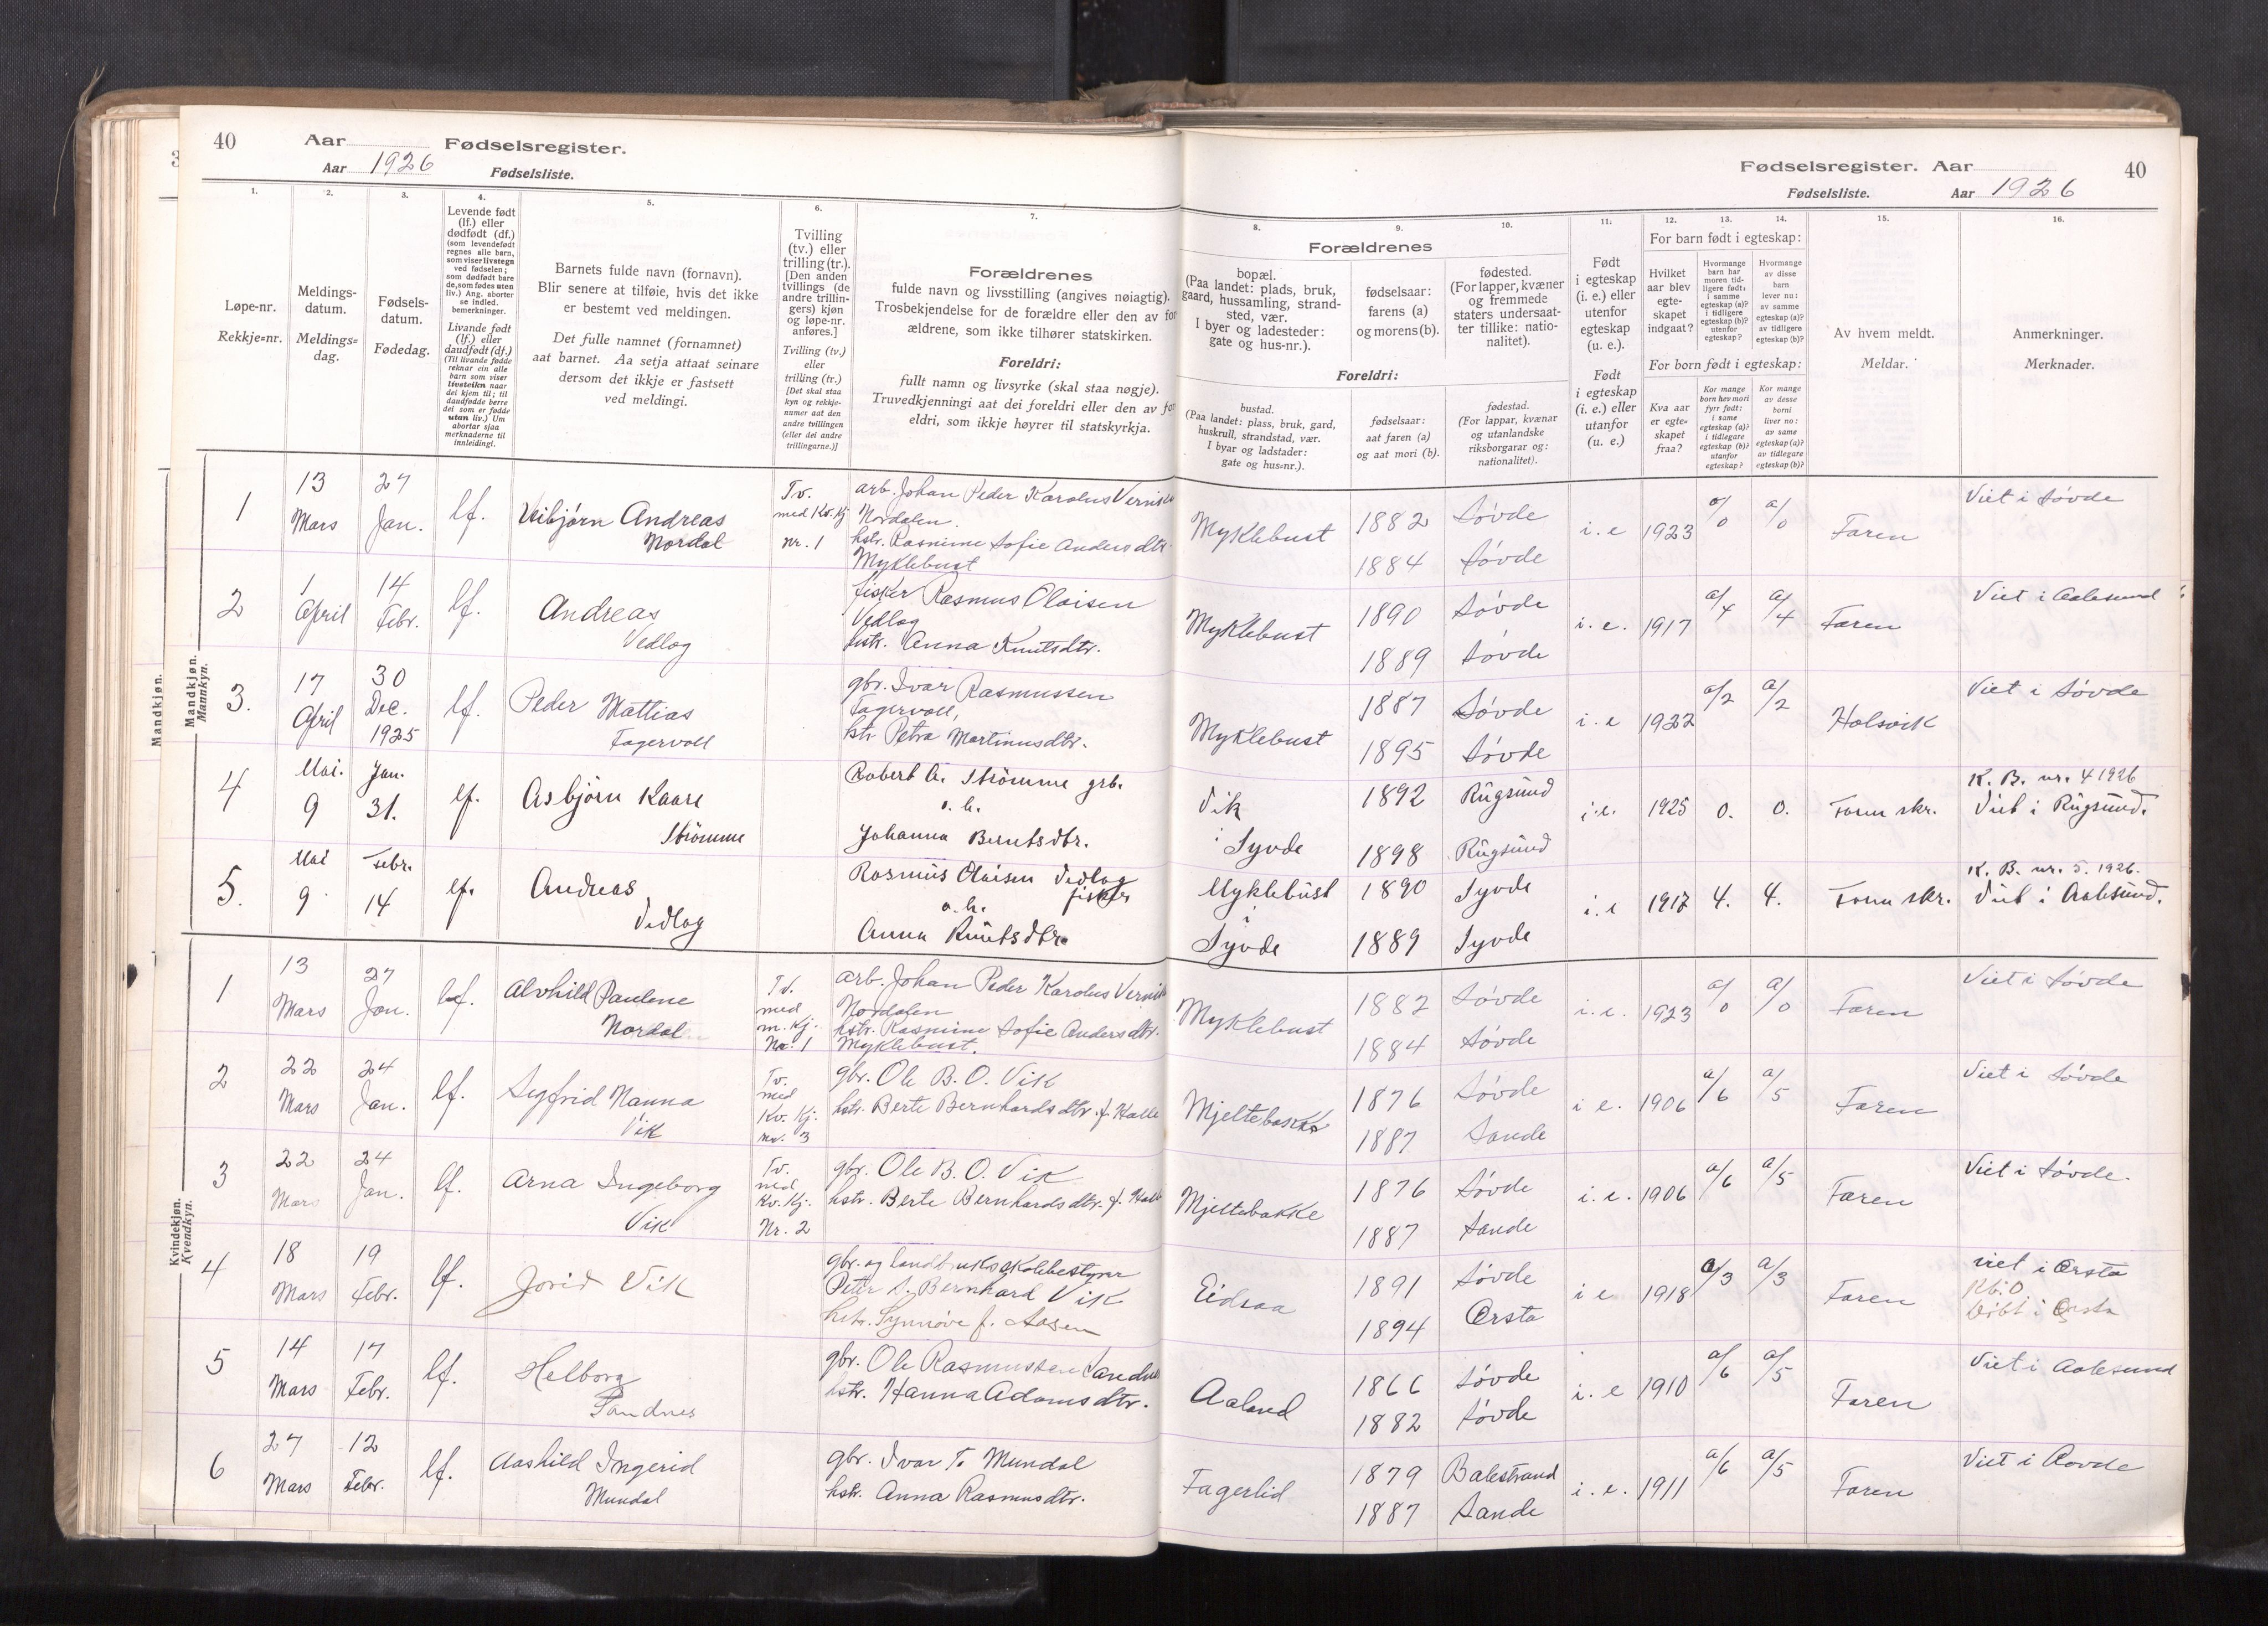 40
Aar
Fødselsregister.
Aar 1926
Fødselsliste.
1.
Løpe-nr.
Rekkje-nr.
2.
Meldings-
datum.
Meldings-
dag.
3.
Fødsels-
datum.
Fødedag.
4.
Levende født
(lf.) eller
dødfødt (df.)
(som levendefødt
regnes alle barn,
som viser livstegn
ved fødselen;
som dødfødt bare
de, som fødes uten
liv.) Ang. aborter
se indled.
bemerkninger.
Livande født
(lf.) eller
daudfødt (df.)
(Til livande fødde
reknar ein alle
barn som viser
livsteikn naar
dei kjem til; til
daudfødde berre
dei som er fødde
utan liv.) Um
abortar sjaa
merknaderne til
innleidingi.
5.
Barnets fulde navn (fornavn).
Blir senere at tilføie, hvis det ikke
er bestemt ved meldingen.
Det fulle namnet (fornamnet)
aat barnet. Aa setja attaat seinare
dersom det ikkje er fastsett
ved meldingi.
6.
Tvilling
(tv.) eller
trilling (tr.).
[Den anden
tvillings (de
andre trillin-
gers) kjøn
og løpe-nr.
anføres.]
Tvilling (tv.)
eller
trilling (tr.)
[Det skal staa
kyn og rekkje-
numer aat den
andre tvillingen
(eller dei andre
trillingarne.)]
7.
Forældrenes
fulde navn og livsstilling (angives nøiagtig).
Trosbekjendelse for de forældre eller den av for-
ældrene, som ikke tilhører statskirken.
Foreldri:
fullt namn og livsyrke (skal staa nøgje).
Truvedkjenningi aat dei foreldri eller den av for-
eldri, som ikkje høyrer til statskyrkja.
Fødselsregister. Aar
40
Fødselsliste.
Aar 1926
8.
Forældrenes
bopæl.
(Paa landet: plads, bruk,
gaard, hussamling, strand-
sted, vær.
I byer og ladesteder:
gate og hus-nr.).
Foreldri:
bustad.
(Paa landet: plass, bruk, gard,
huskrull, strandstad, vær.
I byar og ladstader:
gate og hus-nr.).
9.
fødselsaar:
farens (a)
og morens (b).
fødselsaar:
aat faren (a)
og aat mori (b).
10.
fødested.
(For lapper, kvæner
og fremmede
staters undersaat-
ter tillike: natio-
nalitet).
fødestad.
(For lappar, kvænar
og utanlandske
riksborgarar og:
nationalitet).
11.
Født
i egteskap
(i. e.) eller
utenfor
egteskap
(u. e.).
Født
i egteskap
(i. e.) eller
utanfor
(u. e.)
12.
13.
14.
For barn født i egteskap:
Hvilket
aar blev
egte-
skapet
indgaat?
Hvormange
barn har
moren tid-
ligere født:
i samme
egteskap (a)?
i tidligere
egteskap (b)?
utenfor
egteskap?
Hvormange
av disse
barn
lever nu:
av samme
egteskap (a)?
av tidligere
egteskap (b)?
For born født i egteskap:
Kva aar
er egte-
skapet
fraa?
Kor mange
born hev mori
fyrr født:
i same
egteskap (a)?
i tidlegare
egteskap (b)?
utanfor
egteskap?
Kor mange
av desse
borni
liver no:
av same
egteskap (a)?
av tidlegare
egteskap (b)?
15.
Av hvem meldt.
Meldar.
16.
Anmerkninger.
Merknader.
Mandkjøn.
Mandkjøn.
Mannkyn.
1
13
Mars
27
Jan.
lf.
Veibjørn Andreas
Nordal
Tv.
med Kv. Kj
Nr. 1
arb. Johan Peder Karolus Vernik
Nordalen.
hstr. Rasmine Sofie Andersdtr.
Myklebust
Myklebust
1882
1884
Søvde
Søvde
i. e
1923
a/0
a/0
Faren
Viet i Søvde
2
1
April
14
Febr.
lf.
Andreas
Vedlog
fisker Rasmus Olaisen
Vedlog
hstr. Anna Knutsdtr.
Myklebust
1890
1889
Søvde
Søvde
i. e.
1917
a/4
a/4
Faren
Viet i Aalesund
3.
17
April
30
Dec.
1925
lf.
Peder Mattias
Fagervoll
gbr. Ivar Rasmussen
Fagervoll,
hstr Petra Martinusdtr.
Myklebust
1887
1895
Søvde
Søvde
i. e
1922
a/2
a/2
Holsvik
Viet i Søvde
4
Mai.
9
Jan.
31.
lf.
Asbjørn Kaare
Strømme
Robert A. Strömme grb.
o. h.
Johanna Berntsdtr.
Vik
i Syvde
1892
1898
Rugsund
Rugsund
i.e.
1925
0.
0.
Form skr.
K. B. nr. 4 1926
Viet i Rugsund.
5.
Mai
9
Febr.
14
lf.
Andreas
Vedlog
Rasmus Olaisen Vedlog
fisker
o. h.
Anna Knutsdtr.
Myklebust
i
Syvde
1890
1889
Syvde
Syvde
i. e
1917
4.
4.
Form skr.
K. B. nr. 5. 1926.
Viet i Aalesund.
Kvindekjøn.
Kvendkyn.
1
13
Mars
27
Jan.
lf.
Alvhild Paulene
Nordal
Tv.
med
m. Kj.
Nr. 1
arb. Johan Peder Karolus Vernik
Nordalen
hstr. Rasmine Sofie Andersdtr.
Myklebust.
Myklebust
1882
1884
Søvde
Søvde
i. e.
1923
a/0
a/0
Faren
Viet i Søvde
2
22
Mars
24
Jan.
lf.
Segfrid Nanna
Vik
Tv.
med
Kv. Kj.
nr. 3
gbr. Ole B. O. Vik
hstr. Berte Bernhardsdtr. f. Halle
Mjeltebakke
1876
1887
Søvde
Sande
i e.
1906
a/6
a/5
Faren
Viet i Søvde
3
22
Mars
24
Jan.
lf.
Arna Ingeborg
Vik
Tv.
med
Kv. Kj.
Nr. 2
gbr. Ole B. O. Vik
hstr. Berte Bernhardsdtr. f. Halle
Mjeltebakke
1876
1887
Søvde
Sande
i. e.
1906
a/6
a/5
Faren
Viet i Søvde.
4
18
Mars
19
Febr.
lf.
Jorid Vik
gbr. og landbruksskolebestyrer
Petr S. Bernhard Vik
hstr. Synnöve f. Aasen
Eidsaa
1891
1894
Søvde
Ørsta
i e
1918
a/3
a/3
Faren
viet i Ørsta
5
14
Mars
17
Febr.
lf.
Helborg
Sandnes
gbr. Ole Rasmussen Sandnes
hstr. Hanna Adamsdtr.
Aaland
1866
1882
Søvde
Søvde
i. e
1910
a/6
a/5
Faren
Viet i Aalesund
6
27
Mars
12
Febr.
lf.
Aashild Ingerid
Mundal
gbr. Ivar T. Mundal
hstr. Anna Rasmusdtr.
Fagerlid
1879
1887
Balestrand
Sande
i. e.
1911
a/6
a/5
Faren
Viet i Rovde